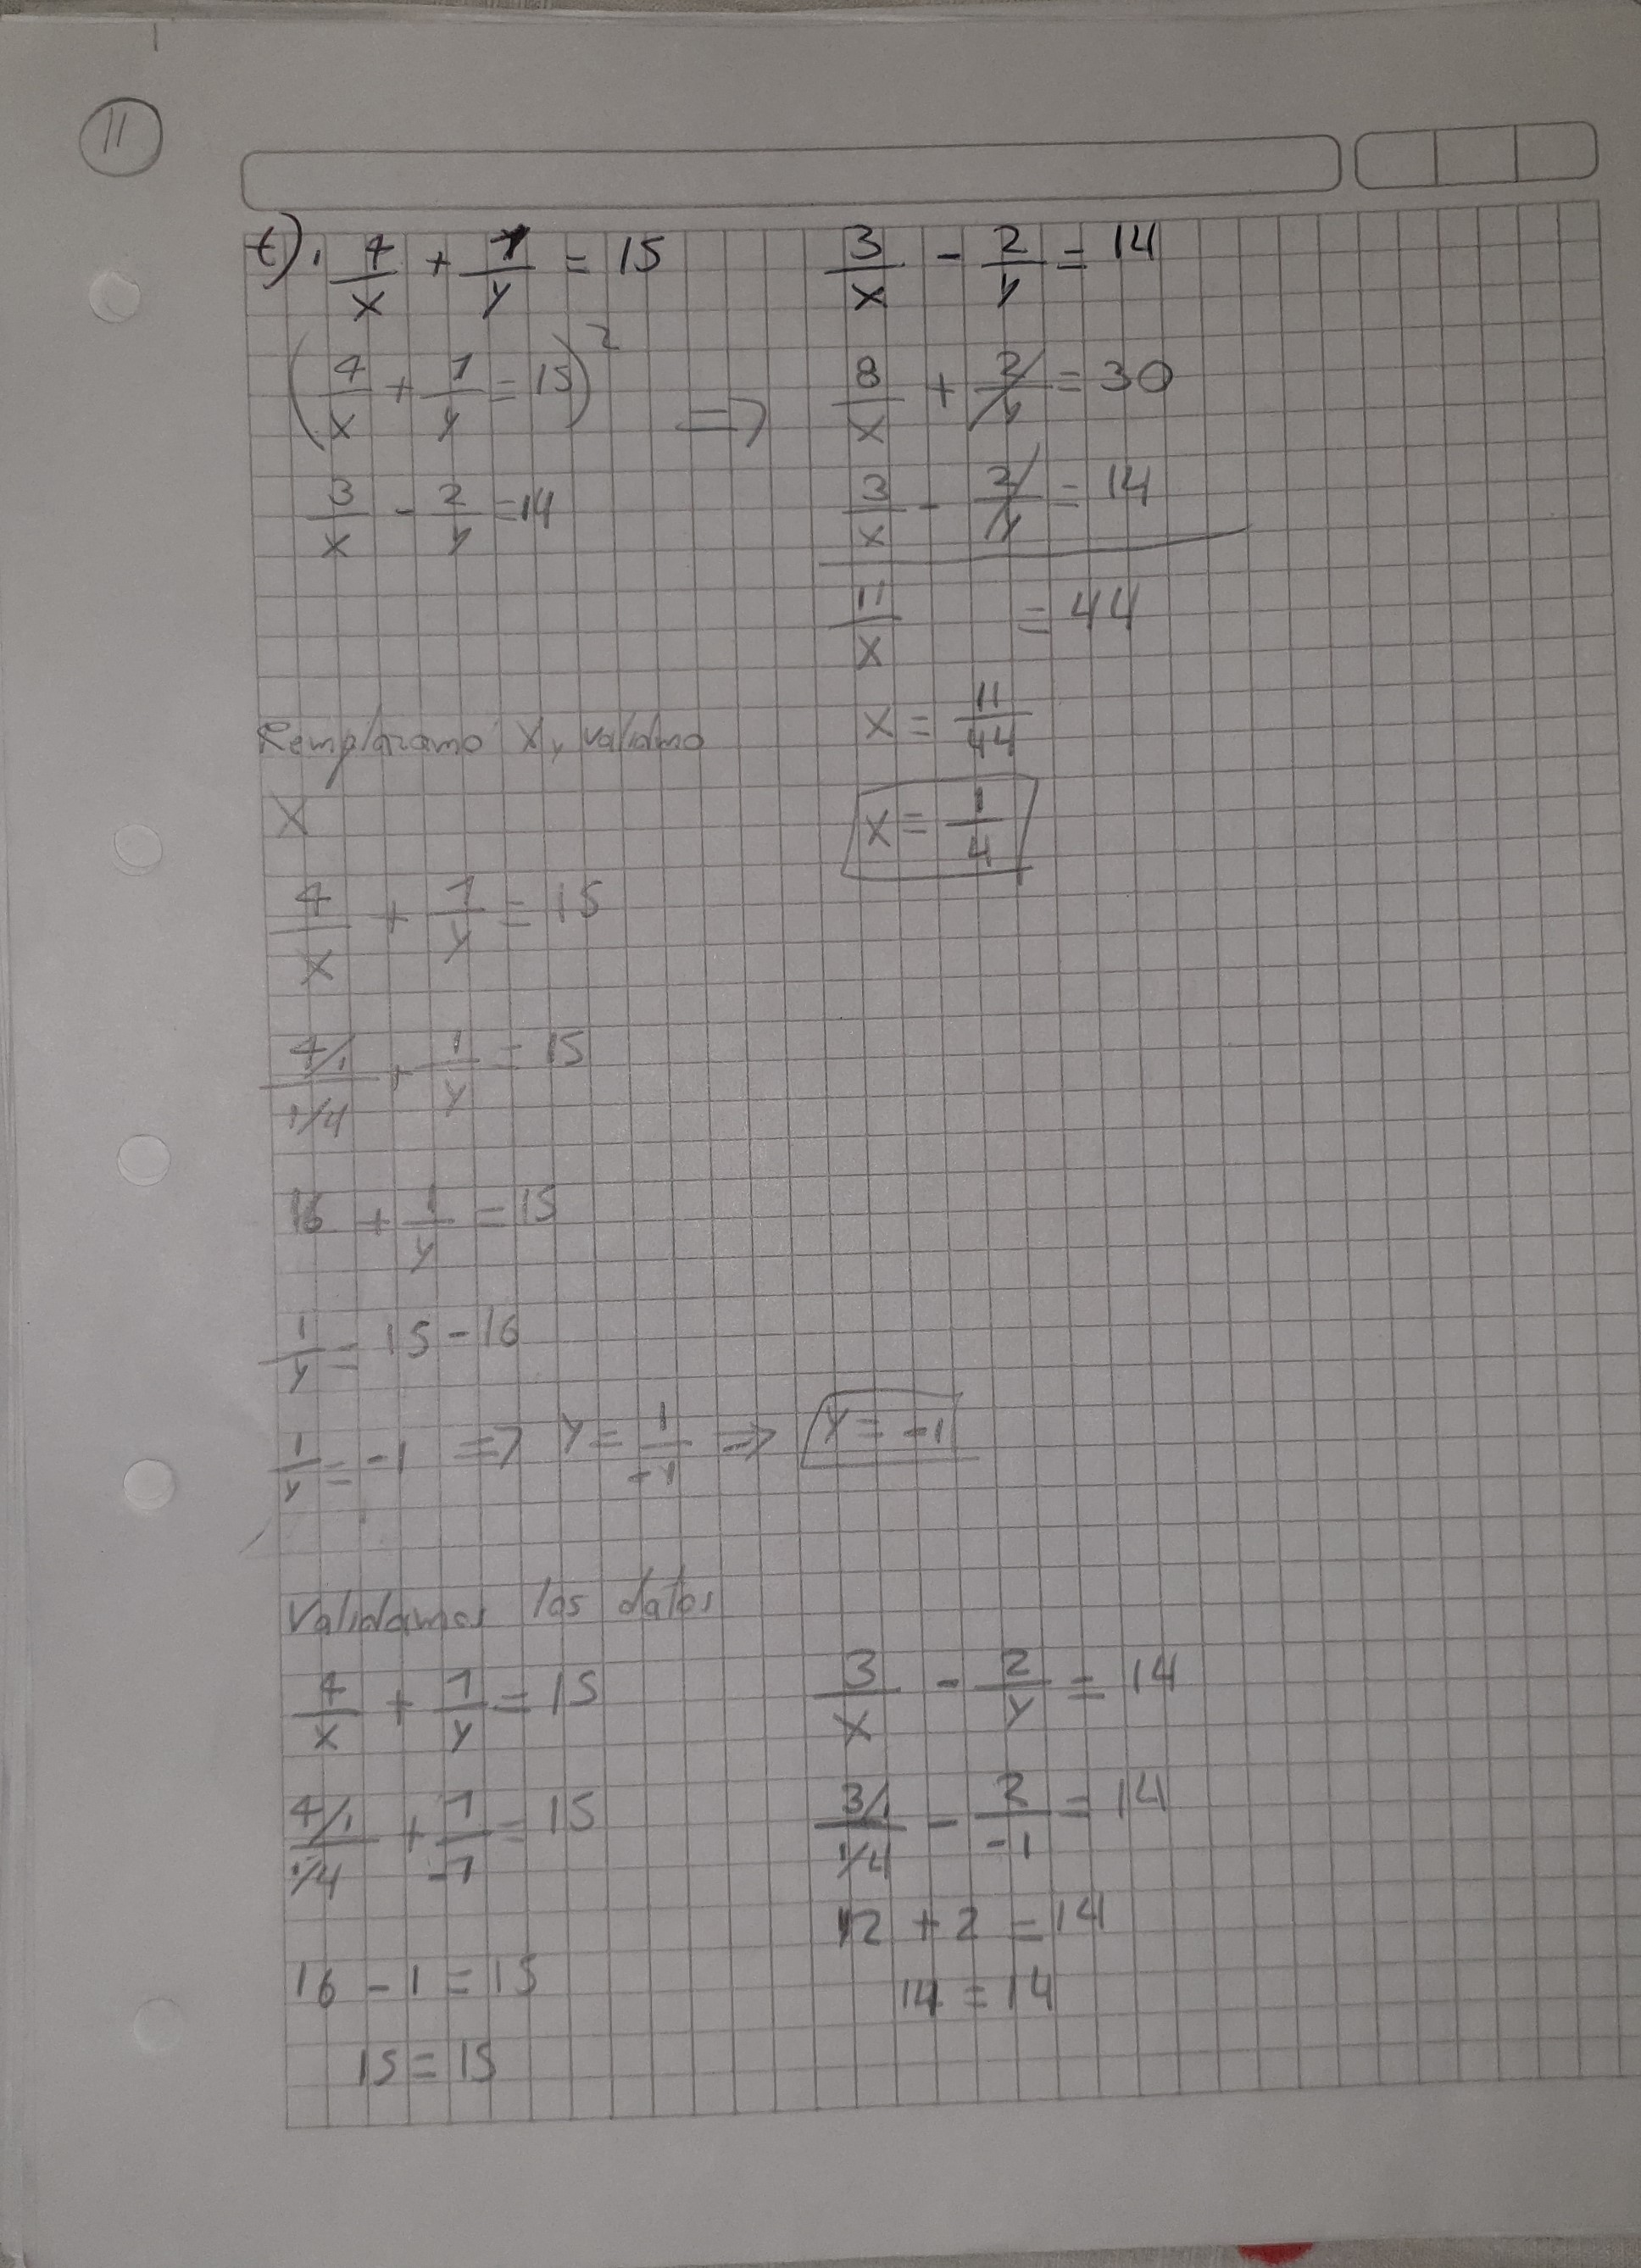 11
t). 4/x + 1/y = 15    3/x - 2/y = 14
(4/x + 1/y = 15)² => 8/x + 2/y = 30
3/x - 2/y = 14    3/x - 2/y = 14
11/x = 44
Remplazamo x, validmo    x = 11/44
x    x = 1/4
4/x + 1/y = 15
4/1/1/4 + 1/y = 15
16 + 1/y = 15
1/y = 15 - 16
1/y = -1 => y = 1/-1 => y = -1
Validamos los datos
4/x + 1/y = 15    3/x - 2/y = 14
4/1/1/4 + 1/-1 = 15    3/1/1/4 - 2/-1 = 14
12 + 2 = 14
16 - 1 = 15    14 = 14
15 = 15